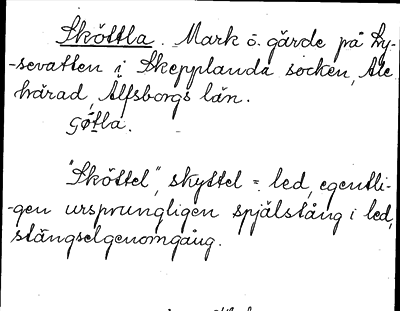 Sköttla. Mark ö. gärde på Ly-
-sevatten i Skepplanda socken, Ale
härad, Älfsborgs län.
Götla.
"Sköttel", skyttel = led, egentli-
-gen ursprungligen spjälstång i led,
stängselgenomgång.